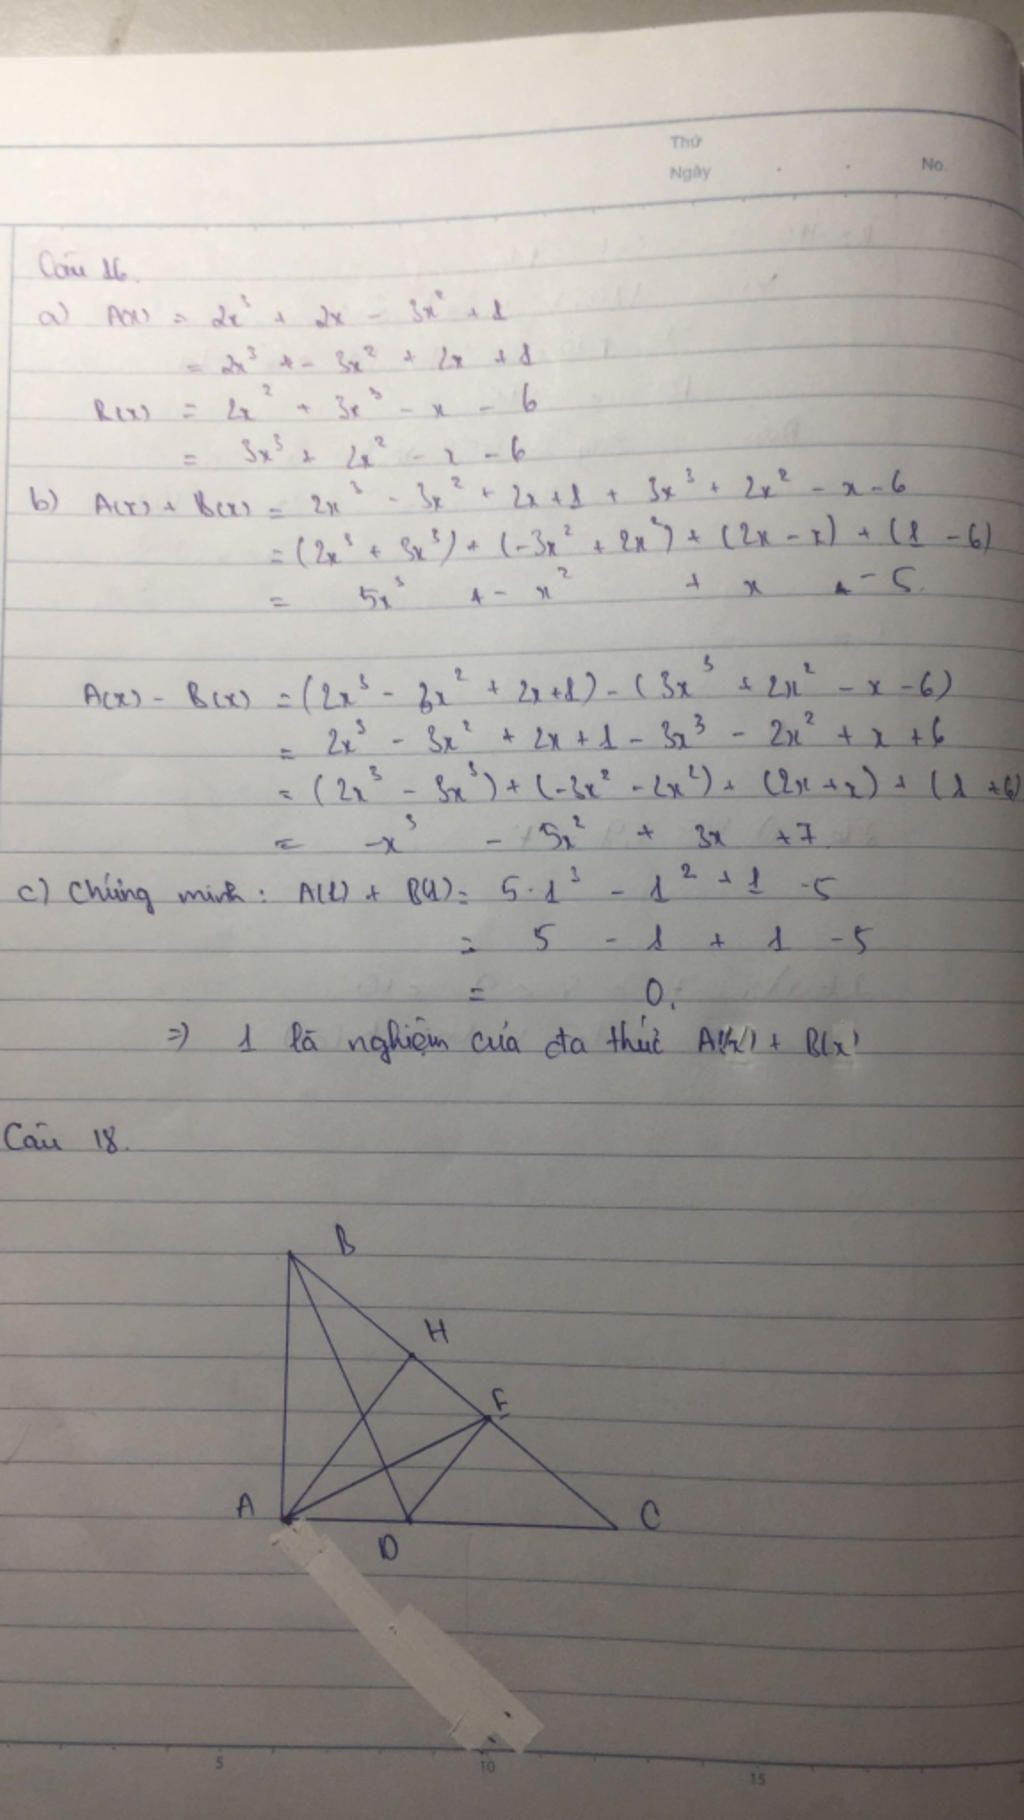 Thứ
Ngày
No.
Câu 16.
a) A(x) = 2x³ + 2x - 3x² + 1
= 2x³ + - 3x² + 2x + 1
B(x) = 2x² + 3x³ - x - 6
= 3x³ + 2x² - x - 6
b) A(x) + B(x) = 2x³ - 3x² + 2x + 1 + 3x³ + 2x² - x - 6
= (2x³ + 3x³) + (-3x² + 2x²) + (2x - x) + (1 - 6)
= 5x³ + - x² + x + - 5.
A(x) - B(x) = (2x³ - 3x² + 2x + 1) - (3x³ + 2x² - x - 6)
= 2x³ - 3x² + 2x + 1 - 3x³ - 2x² + x + 6
= (2x³ - 3x³) + (-3x² - 2x²) + (2x + x) + (1 + 6)
= -x³ - 5x² + 3x + 7.
c) Chứng minh: A(1) + B(1) = 5.1³ - 1² + 1 - 5
= 5 - 1 + 1 - 5
= 0.
=> 1 là nghiệm của đa thức A(x) + B(x)
Câu 18.
B
H
E
A
D
C
5
10
15